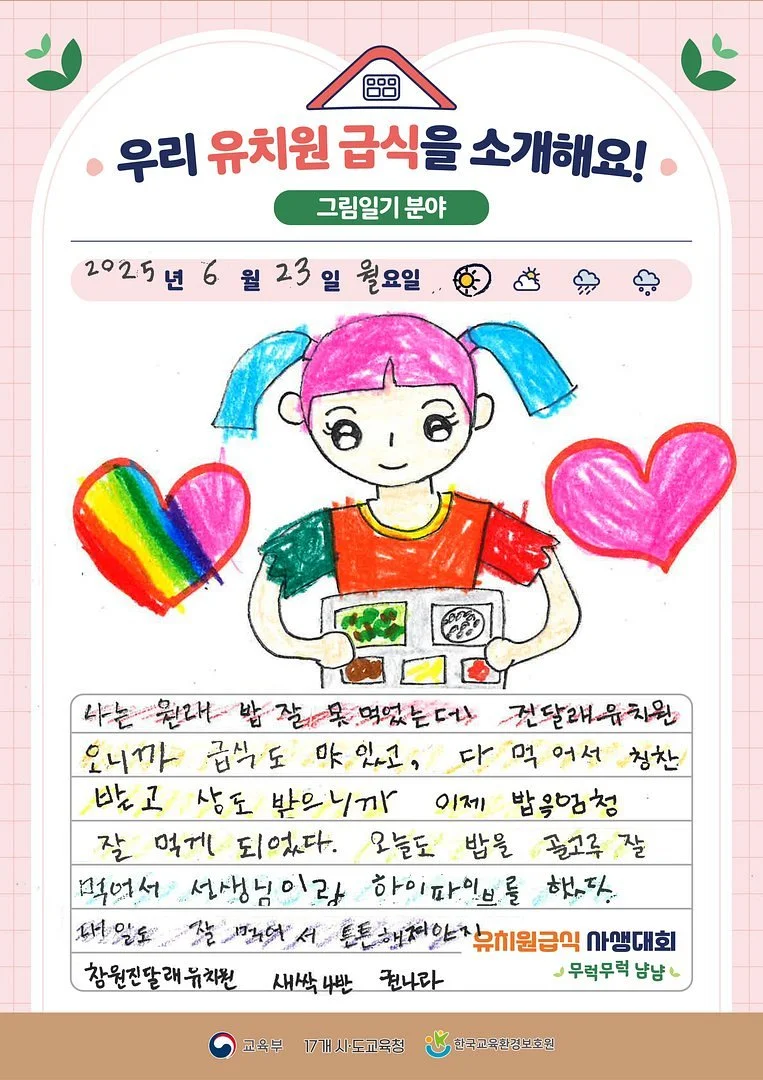 우리 유치원 급식을 소개해요!
그림일기 분야
2025년 6월 23일 월요일
나는 원래 밥 잘 못 먹었는데 진달래유치원
오니까 급식도 맛있고, 다 먹어서 칭찬
받고 상도 받으니까 이제 밥을엄청
잘 먹게 되었다. 오늘도 밥을 골고루 잘
먹어서 선생님이랑 하이파이브를 했다.
내일도 잘 먹어서 튼튼해져야지
유치원급식 사생대회
무럭무럭 냠냠
창원진달래유치원 새싹나반 권나라
교육부 17개 시·도교육청 한국교육환경보호원